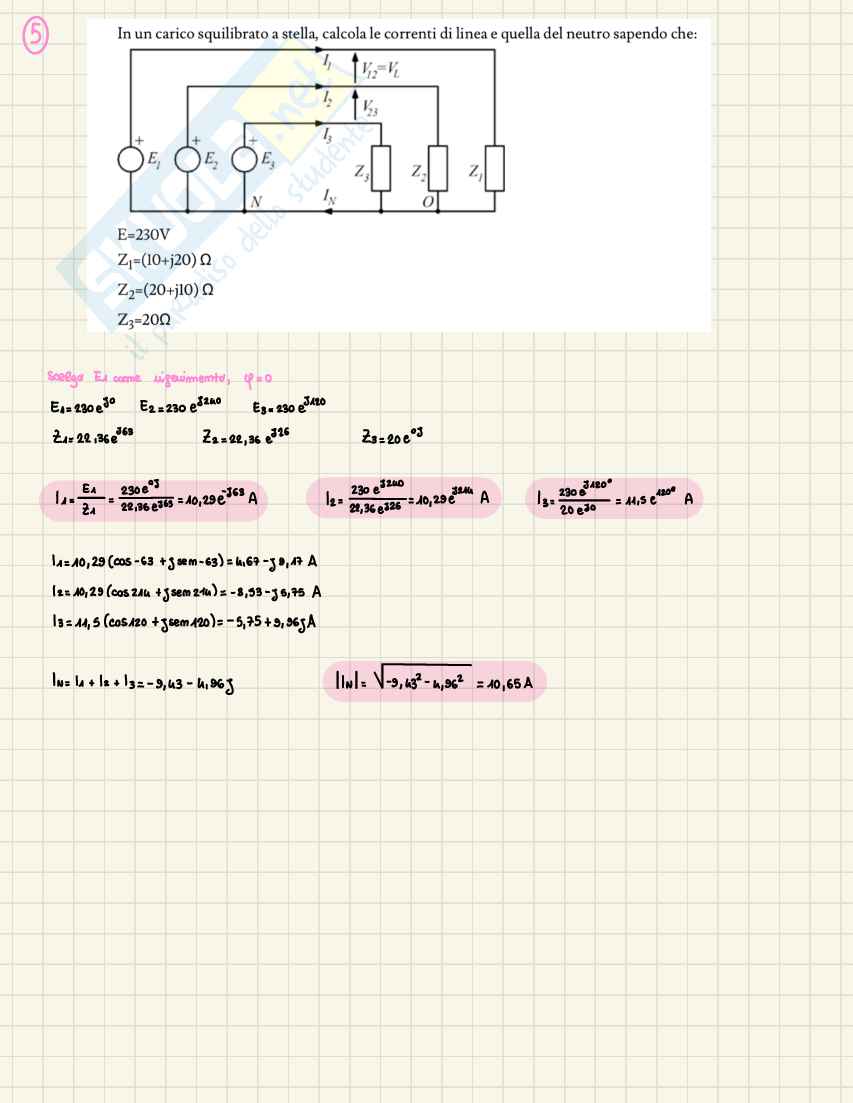 5
In un carico squilibrato a stella, calcola le correnti di linea e quella del neutro sapendo che:
I₁ V₁₂=V_L
I₂ V₂₃
I₃
+ E₁ + E₂ + E₃ Z₃ Z₂ Z₁
N I_N O
SKUOLA.net
il paradiso dello studente
E=230V
Z₁=(10+j20) Ω
Z₂=(20+j10) Ω
Z₃=20Ω
Scelgo E₁ come riferimento, φ=0
E₁=230e^j0 E₂=230e^j240 E₃=230e^j120
Z₁=22,36e^j63 Z₂=22,36e^j26 Z₃=20e^0j
I₁= E₁/Z₁ = 230e^0j/22,36e^j63 = 10,29e^-j63 A I₂= 230e^j240/22,36e^j26 = 10,29e^j214 A I₃= 230e^j120°/20e^j0 = 11,5e^120° A
I₁=10,29(cos-63 + jsem-63)= 4,67-j9,17 A
I₂=10,29(cos214 + jsem214)= -8,53-j5,75 A
I₃=11,5(cos120 + jsem120)= -5,75+9,96jA
I_N= I₁ + I₂ + I₃= -9,43 - 4,96j |I_N|= √-9,43²-4,96² = 10,65 A